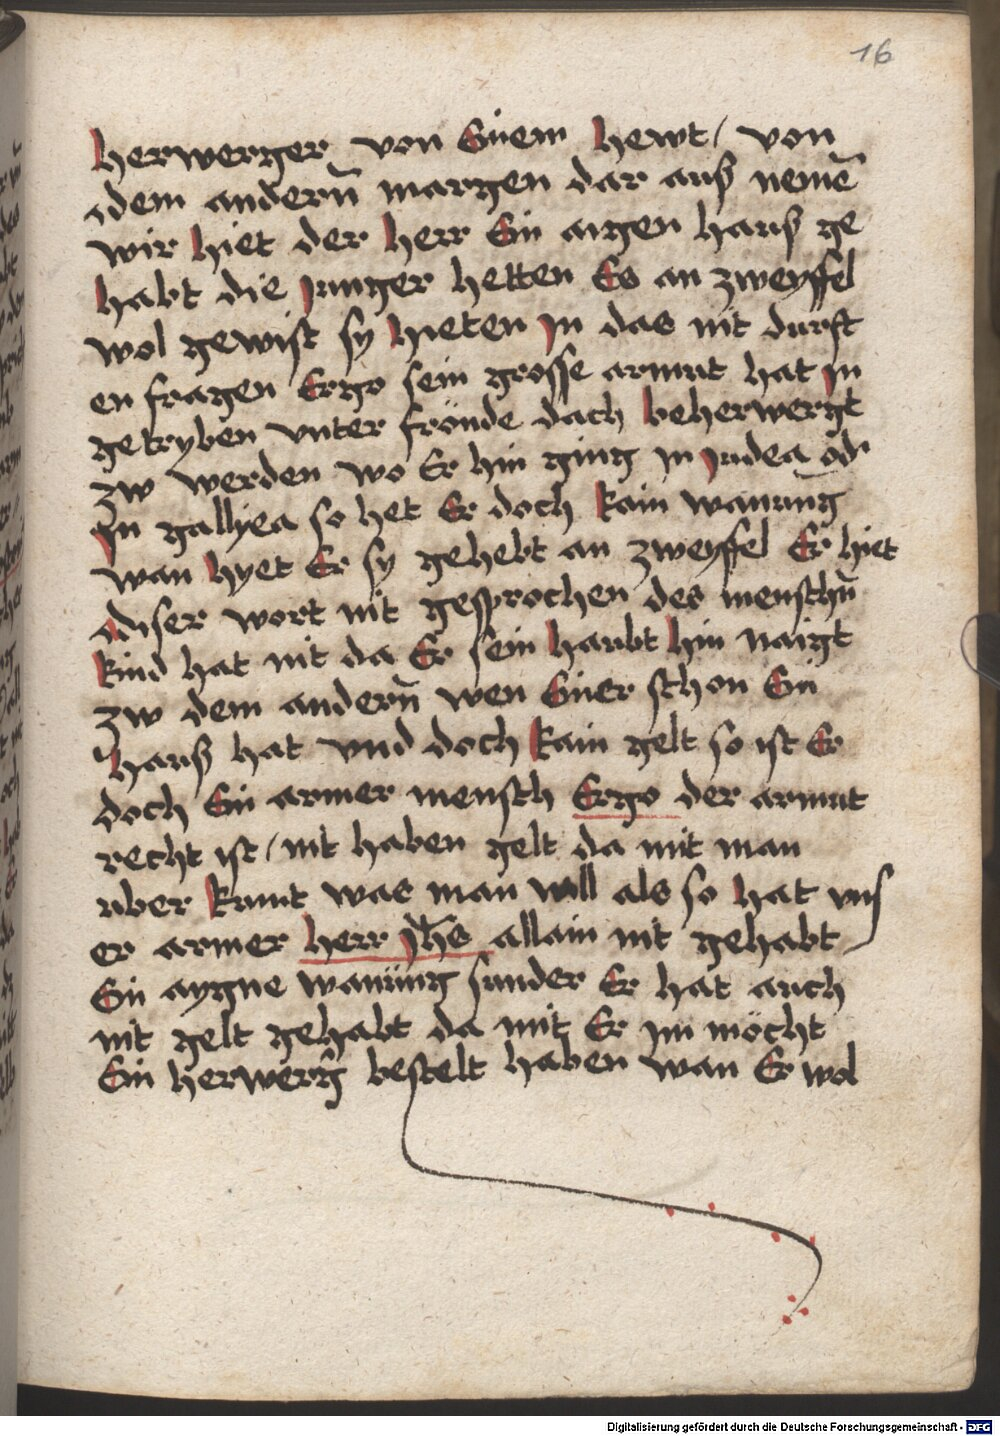 16
herwerger von Einem hewt / von
dem andern̄ margen dar auß nemē
wir hiet der herr Ein aigen hauß ge
habt die junger hetten Es an zweyffel
wol gewist sy hieten jn das nit durfft
en fragen Ergo sein grosse armut hat jn
getryben vnter frönde dach beherwergt
zw werden wo Er hin ging jn judea od'
jn gallyea so het Er doch kain wanung
wan hyet Er sy gehebt an zweyffel Er hiet
diser wort nit gesprochen des menschn̄
kind hat nit da Er sein haubt hin naigt
zw dem andern̄ wen Einer schon Ein
hauß hat vnd doch kain gelt so ist Er
doch Ein armer mensch Ergo der armut
recht ist / nit haben gelt da mit man
uber kumt was man woll als so hat vns
er armer herr jh̄s allain nit gehabt
Ein aygne wanüng sunder Er hat auch
nit gelt gehabt da mit Er jm möcht
Ein herwerg bestelt haben wan Er wol
Digitalisierung gefördert durch die Deutsche Forschungsgemeinschaft - DFG